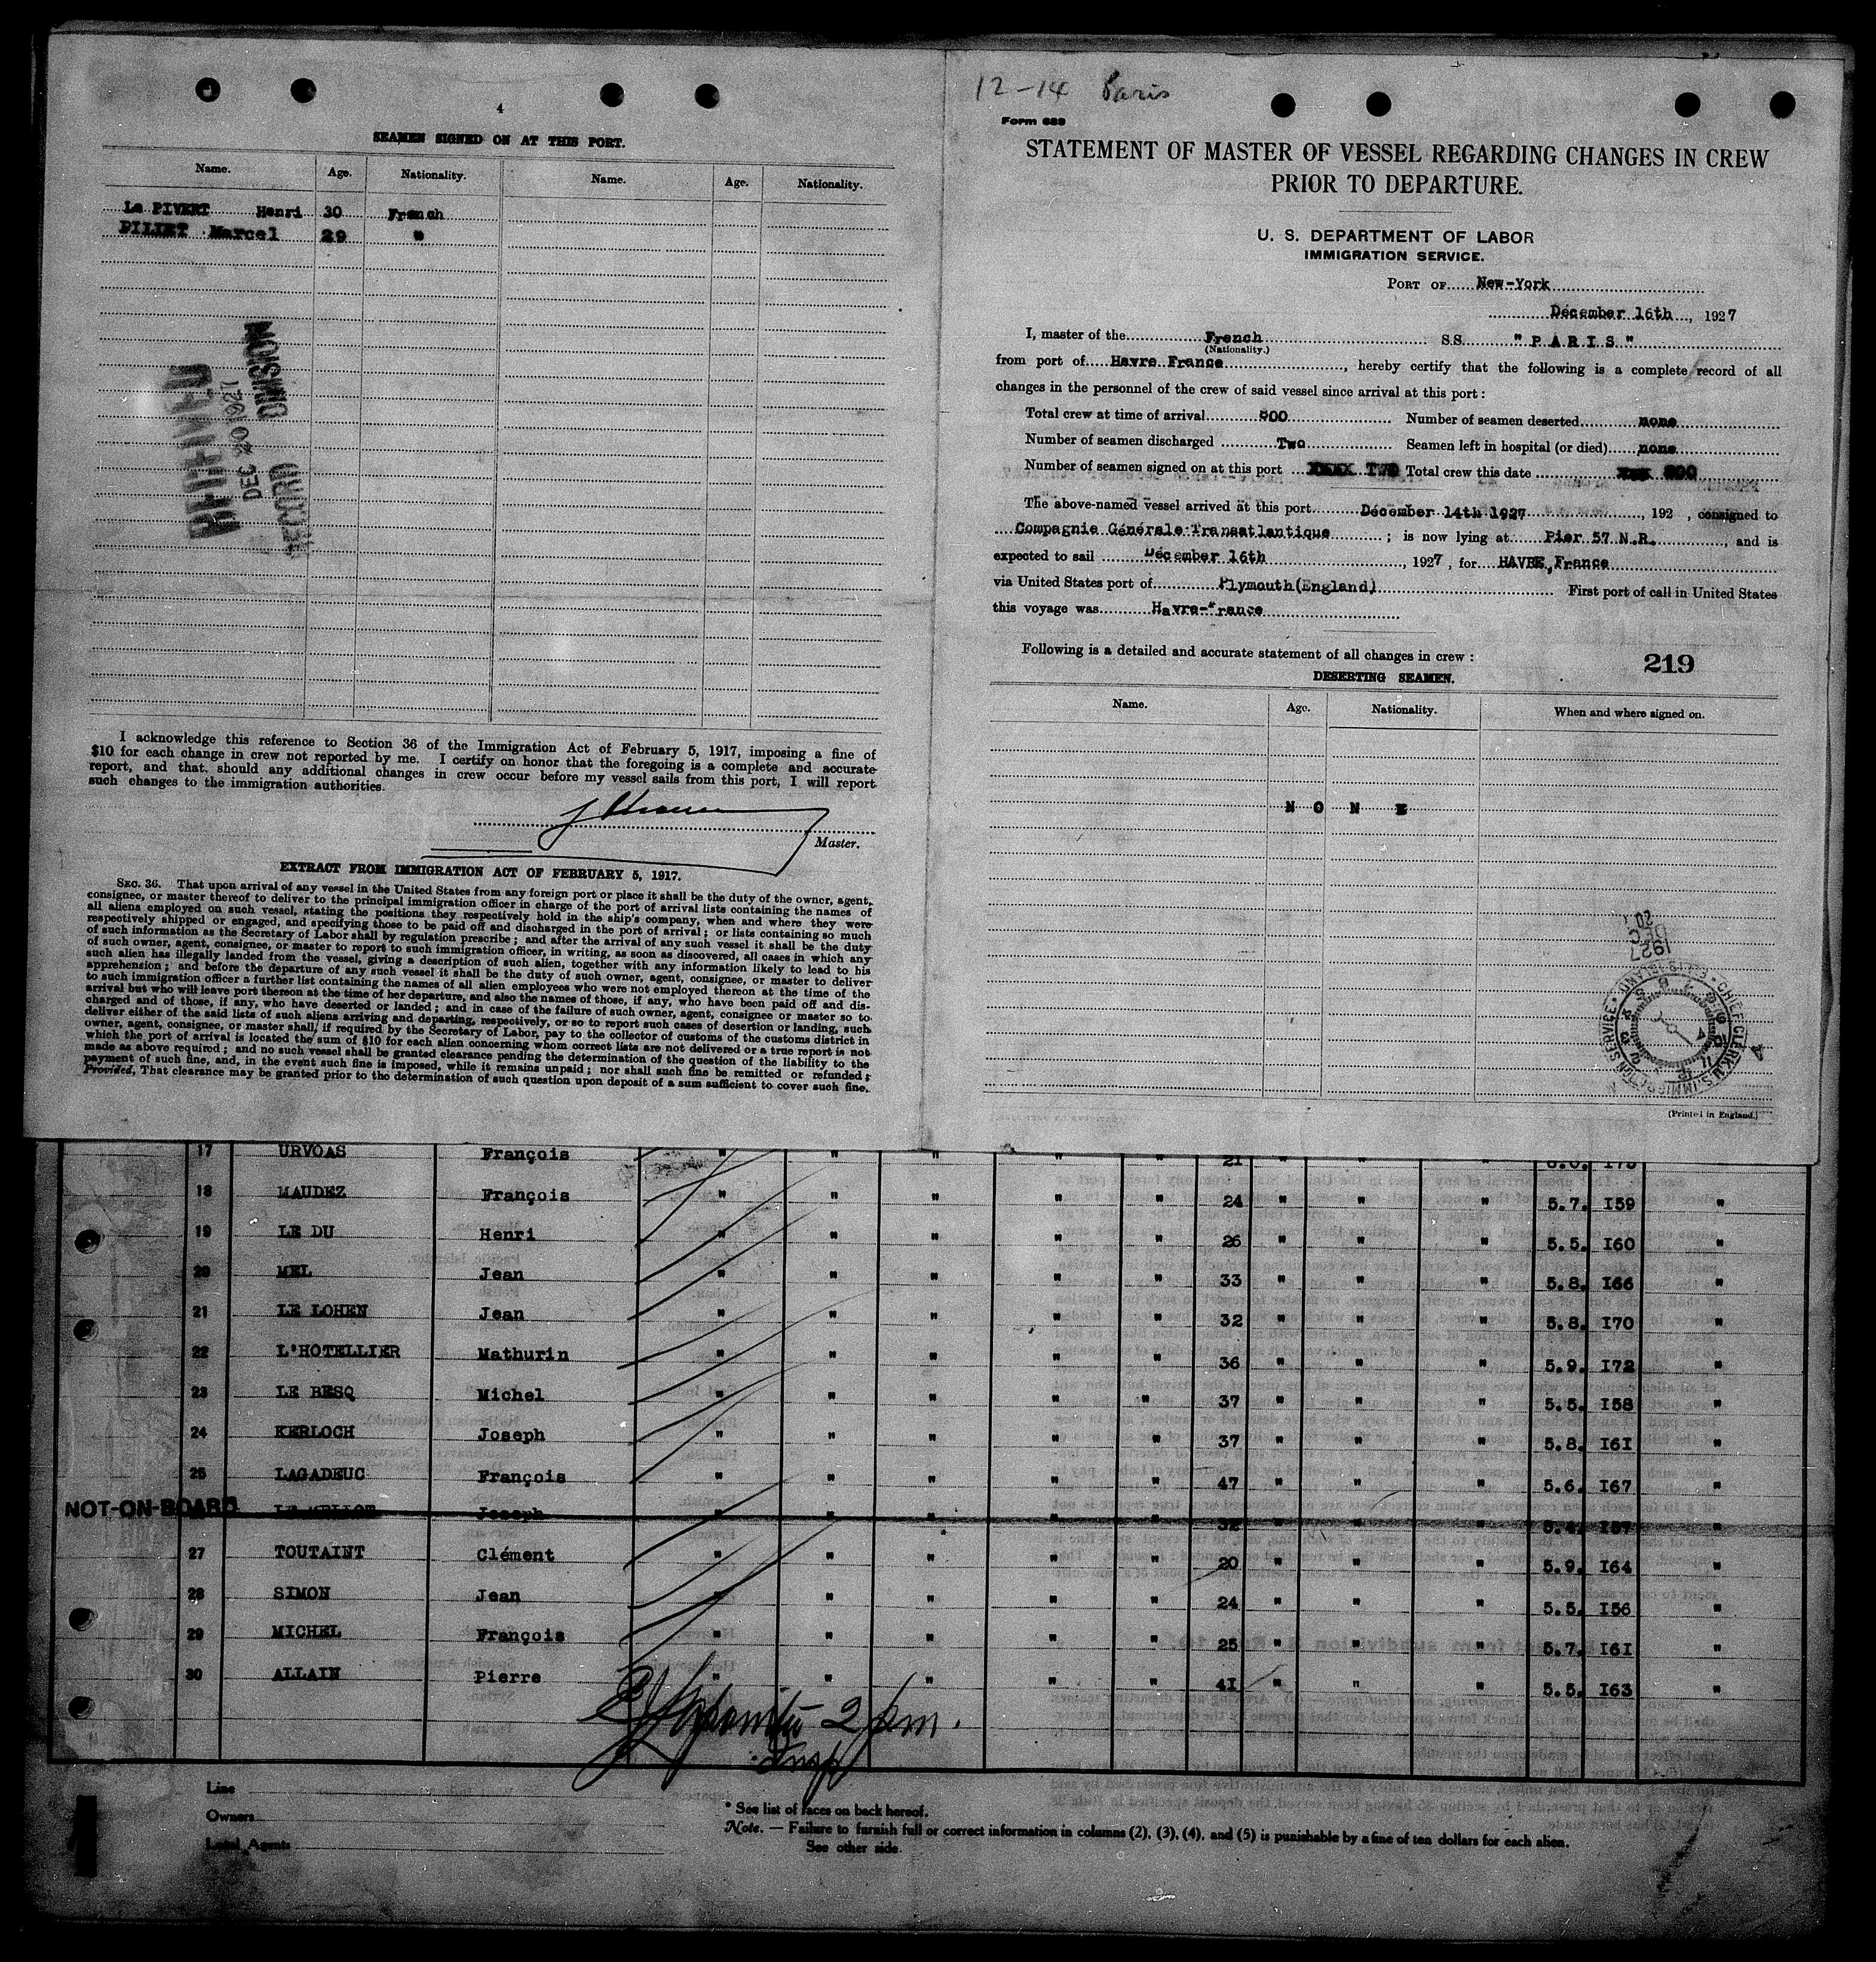 4
SEAMEN SIGNED ON AT THIS PORT.
Name. Age. Nationality. Name. Age. Nationality.
Le PIVERT Henri 30 French
PILIET Marcel 29 "
DEC 20 1927
RECORD DIVISION
I acknowledge this reference to Section 36 of the Immigration Act of February 5, 1917, imposing a fine of
$10 for each change in crew not reported by me. I certify on honor that the foregoing is a complete and accurate
report, and that should any additional changes in crew occur before my vessel sails from this port, I will report
such changes to the immigration authorities.
Master.
EXTRACT FROM IMMIGRATION ACT OF FEBRUARY 5, 1917.
SEC. 36. That upon arrival of any vessel in the United States from any foreign port or place it shall be the duty of the owner, agent,
consignee, or master thereof to deliver to the principal immigration officer in charge of the port of arrival lists containing the names of
all aliens employed on such vessel, stating the positions they respectively hold in the ship's company, when and where they were
respectively shipped or engaged, and specifying those to be paid off and discharged in the port of arrival; or lists containing so much
of such information as the Secretary of Labor shall by regulation prescribe; and after the arrival of any such vessel it shall be the duty
of such owner, agent, consignee, or master to report to such immigration officer, in writing, as soon as discovered, all cases in which any
such alien has illegally landed from the vessel, giving a description of such alien, together with any information likely to lead to his
apprehension; and before the departure of any such vessel it shall be the duty of such owner, agent, consignee, or master to deliver
to such immigration officer a further list containing the names of all alien employees who were not employed thereon at the time of the
arrival but who will leave port thereon at the time of her departure, and also the names of those, if any, who have been paid off and dis-
charged and of those, if any, who have deserted or landed; and in case of the failure of such owner, agent, consignee or master so to
deliver either of the said lists of such aliens arriving and departing, respectively, or so to report such cases of desertion or landing, such
owner, agent, consignee, or master shall, if required by the Secretary of Labor, pay to the collector of customs of the customs district in
which the port of arrival is located the sum of $10 for each alien concerning whom correct lists are not delivered or a true report is not
made as above required; and no such vessel shall be granted clearance pending the determination of the question of the liability to the
payment of such fine, and, in the event such fine is imposed, while it remains unpaid; nor shall such fine be remitted or refunded;
Provided, That clearance may be granted prior to the determination of such question upon deposit of a sum sufficient to cover such fine.
12-14 Paris
Form 689
STATEMENT OF MASTER OF VESSEL REGARDING CHANGES IN CREW
PRIOR TO DEPARTURE.
U. S. DEPARTMENT OF LABOR
IMMIGRATION SERVICE.
PORT OF New-York
Décember 16th, 1927
I, master of the French SS. "PARIS"
(Nationality.)
from port of Havre France, hereby certify that the following is a complete record of all
changes in the personnel of the crew of said vessel since arrival at this port:
Total crew at time of arrival 800 Number of seamen deserted none
Number of seamen discharged Two Seamen left in hospital (or died) none
Number of seamen signed on at this port XXXX TWO Total crew this date xxx 800
The above-named vessel arrived at this port Décember 14th 1927, 192 , consigned to
Compagnie Générale Transatlantique ; is now lying at Pier 57 N.R., and is
expected to sail Décember 16th, 1927, for HAVRE, France
via United States port of Plymouth(England) First port of call in United States
this voyage was Havre-France
Following is a detailed and accurate statement of all changes in crew:
219
DESERTING SEAMEN.
Name. Age. Nationality. When and where signed on.
N O N E
DEC 20 1927
CHIEF CLERK U.S. IMMIGRATION SERVICE
(Printed in England.)
17 URVOAS François " " " " " 21 " " "
18 MAUDEZ François " " " " " 24 " " " 5.7. I59 "
19 LE DU Henri " " " " " 26 " " " 5.5. I60 "
20 MEL Jean " " " " " 33 " " " 5.8. I66 "
21 LE LOHEN Jean " " " " " 32 " " " 5.8. I70 "
22 L'HOTELLIER Mathurin " " " " " 36 " " " 5.9. I72 "
23 LE BESQ Michel " " " " " 37 " " " 5.5. I58 "
24 KERLOCH Joseph " " " " " 37 " " " 5.8. I6I "
25 LAGADEUC François " " " " " 47 " " " 5.6. I67 "
NOT-ON-BOARD Joseph " " " " " 32 " " " 5.4. I57 "
27 TOUTAINT Clément " " " " " 20 " " " 5.9. I64 "
28 SIMON Jean " " " " " 24 " " " 5.5. I56 "
29 MICHEL François " " " " " 25 " " " 5.7. I6I "
30 ALLAIN Pierre " " " " " 4I " " " 5.5. I63 "
2 pm.
Insp
Line
Owners
Local Agents
* See list of races on back hereof.
Note. — Failure to furnish full or correct information in columns (2), (3), (4), and (5) is punishable by a fine of ten dollars for each alien.
See other side.